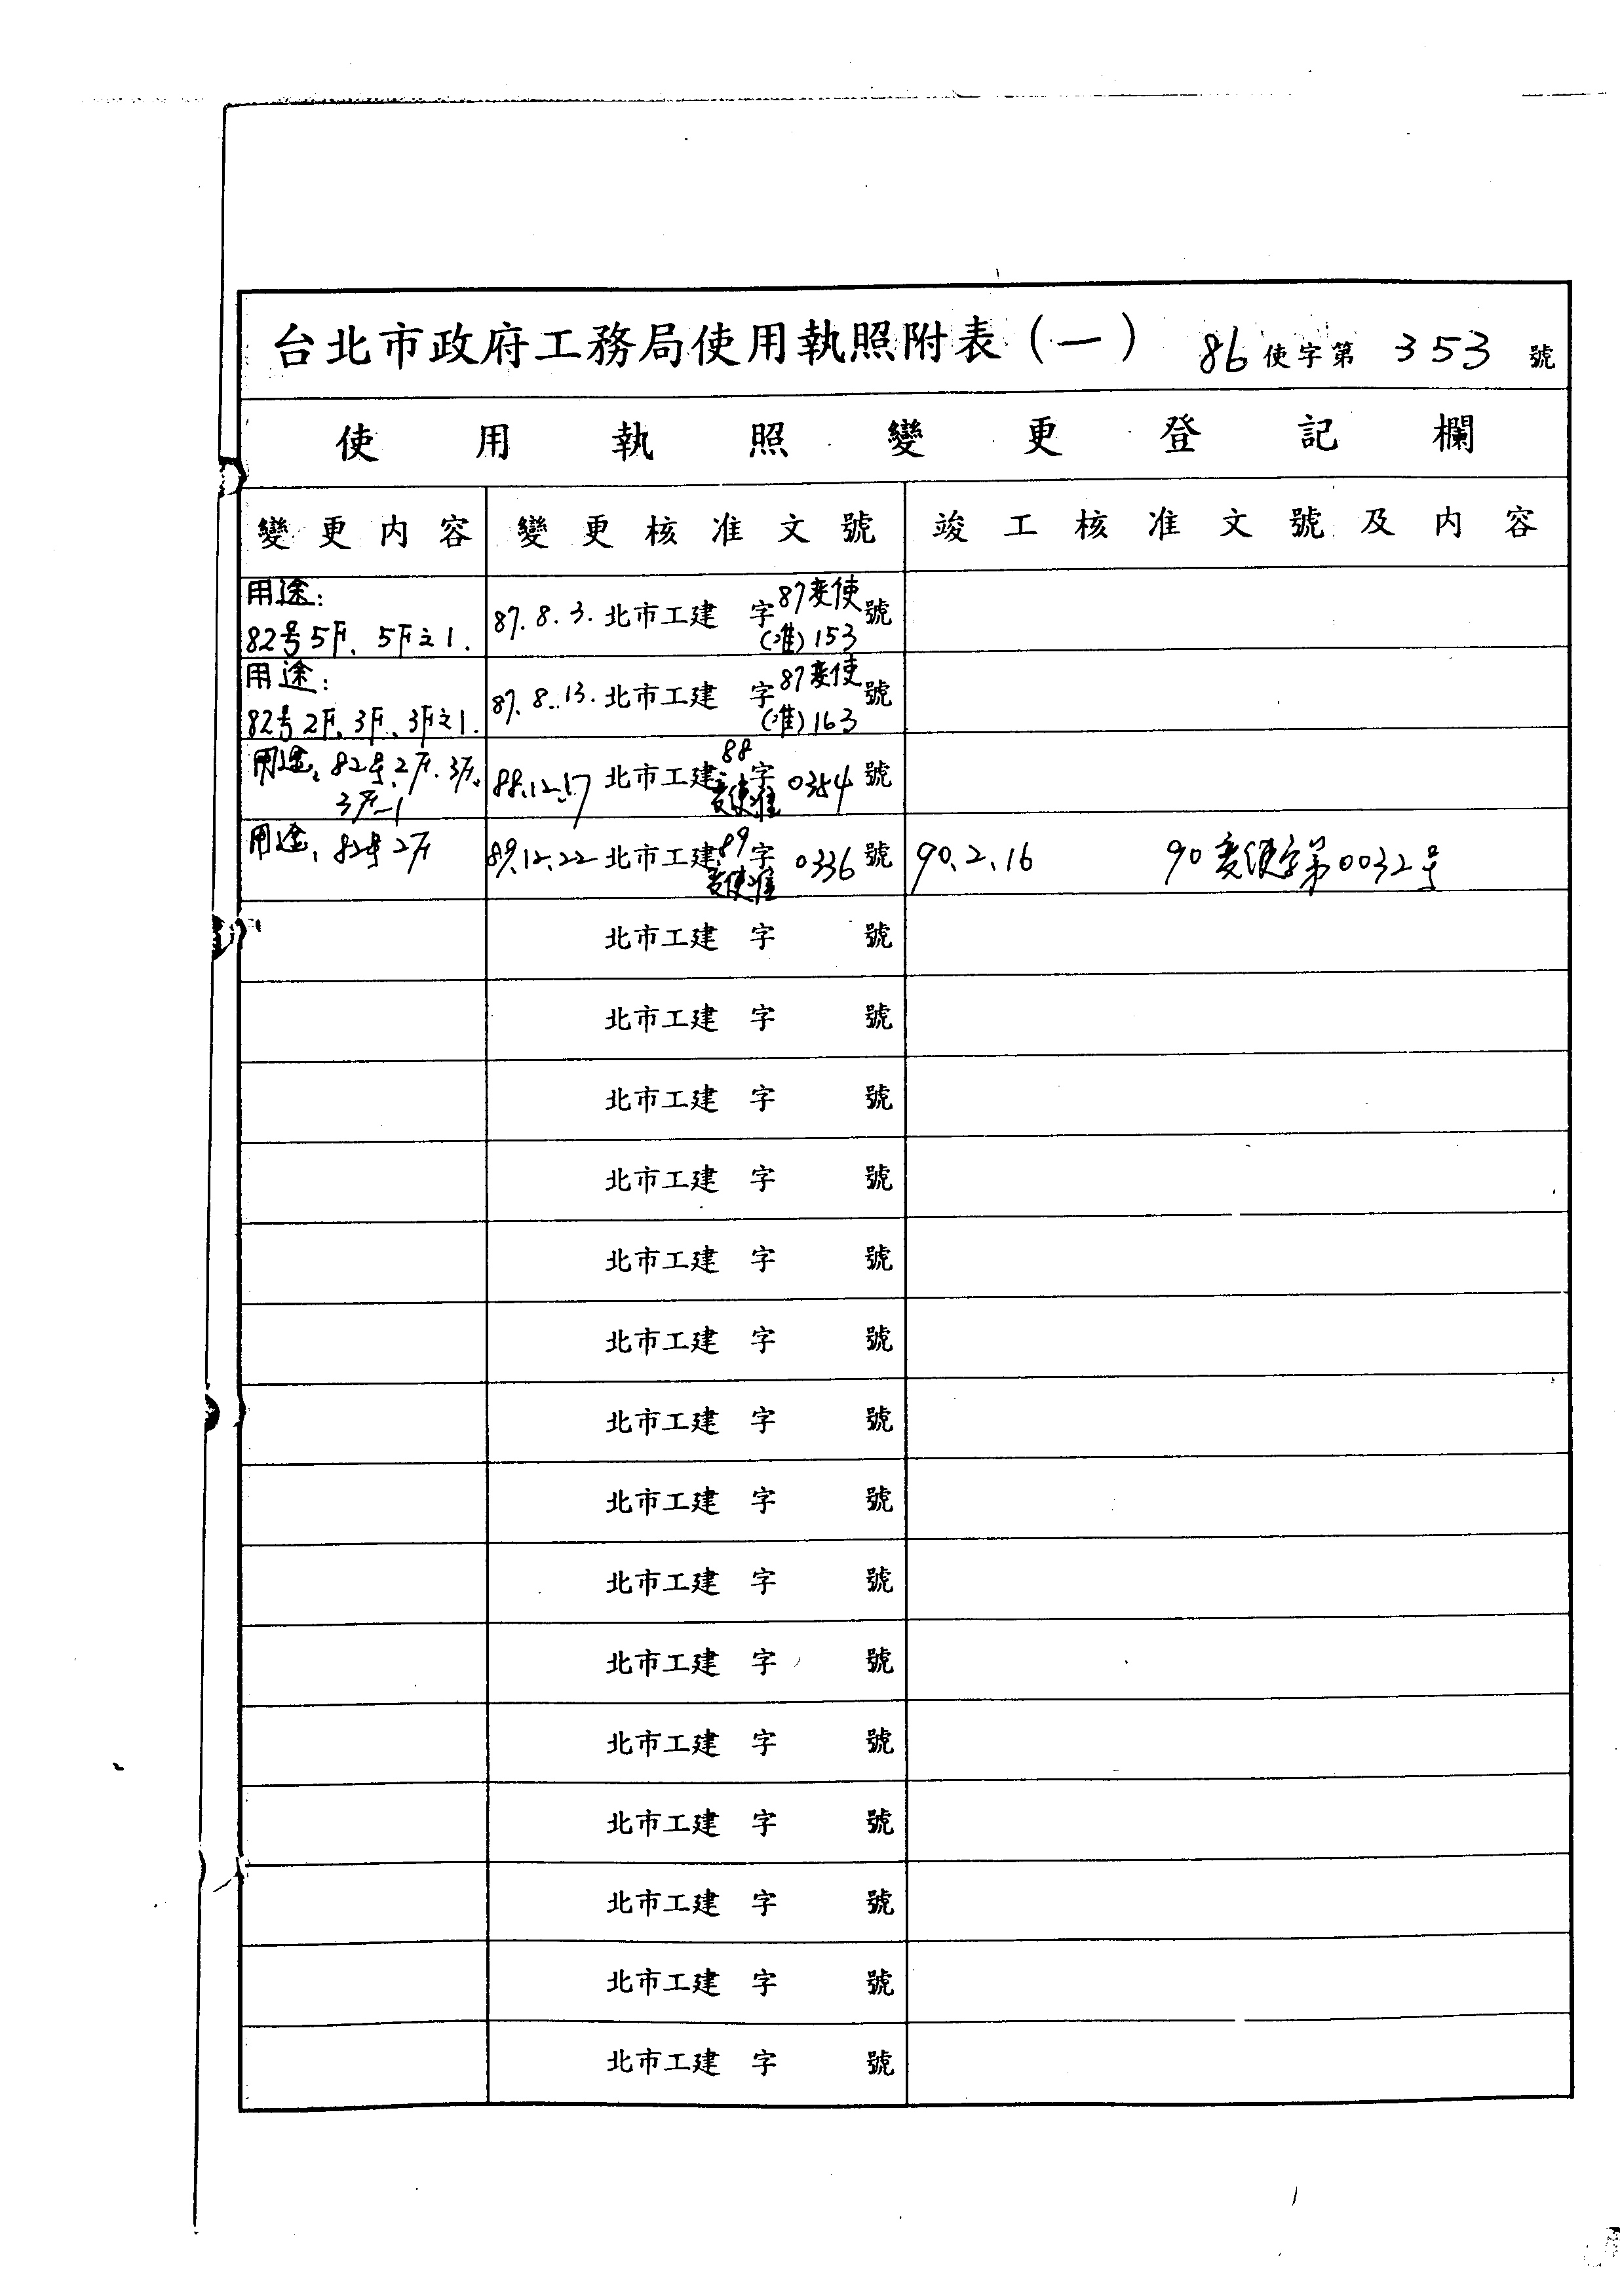 台北市政府工務局使用執照附表(一) 86使字第 353 號
使用執照變更登記欄
變更內容 變更核准文號 竣工核准文號及內容
用途:
82号5F、5F之1. 87.8.3. 北市工建 字 87变使(准)153 號
用途:
82号2F、3F、3F之1. 87.8.13. 北市工建 字 87变使(准)163 號
用途、82号、2F、3F、
3F-1 88.12.17 北市工建 字 88变使准 0354 號
用途、82号2F 89.12.22 北市工建 字 89变使准 0336 號 90.2.16 90变使字第0032号
北市工建 字 號
北市工建 字 號
北市工建 字 號
北市工建 字 號
北市工建 字 號
北市工建 字 號
北市工建 字 號
北市工建 字 號
北市工建 字 號
北市工建 字 號
北市工建 字 號
北市工建 字 號
北市工建 字 號
北市工建 字 號
北市工建 字 號